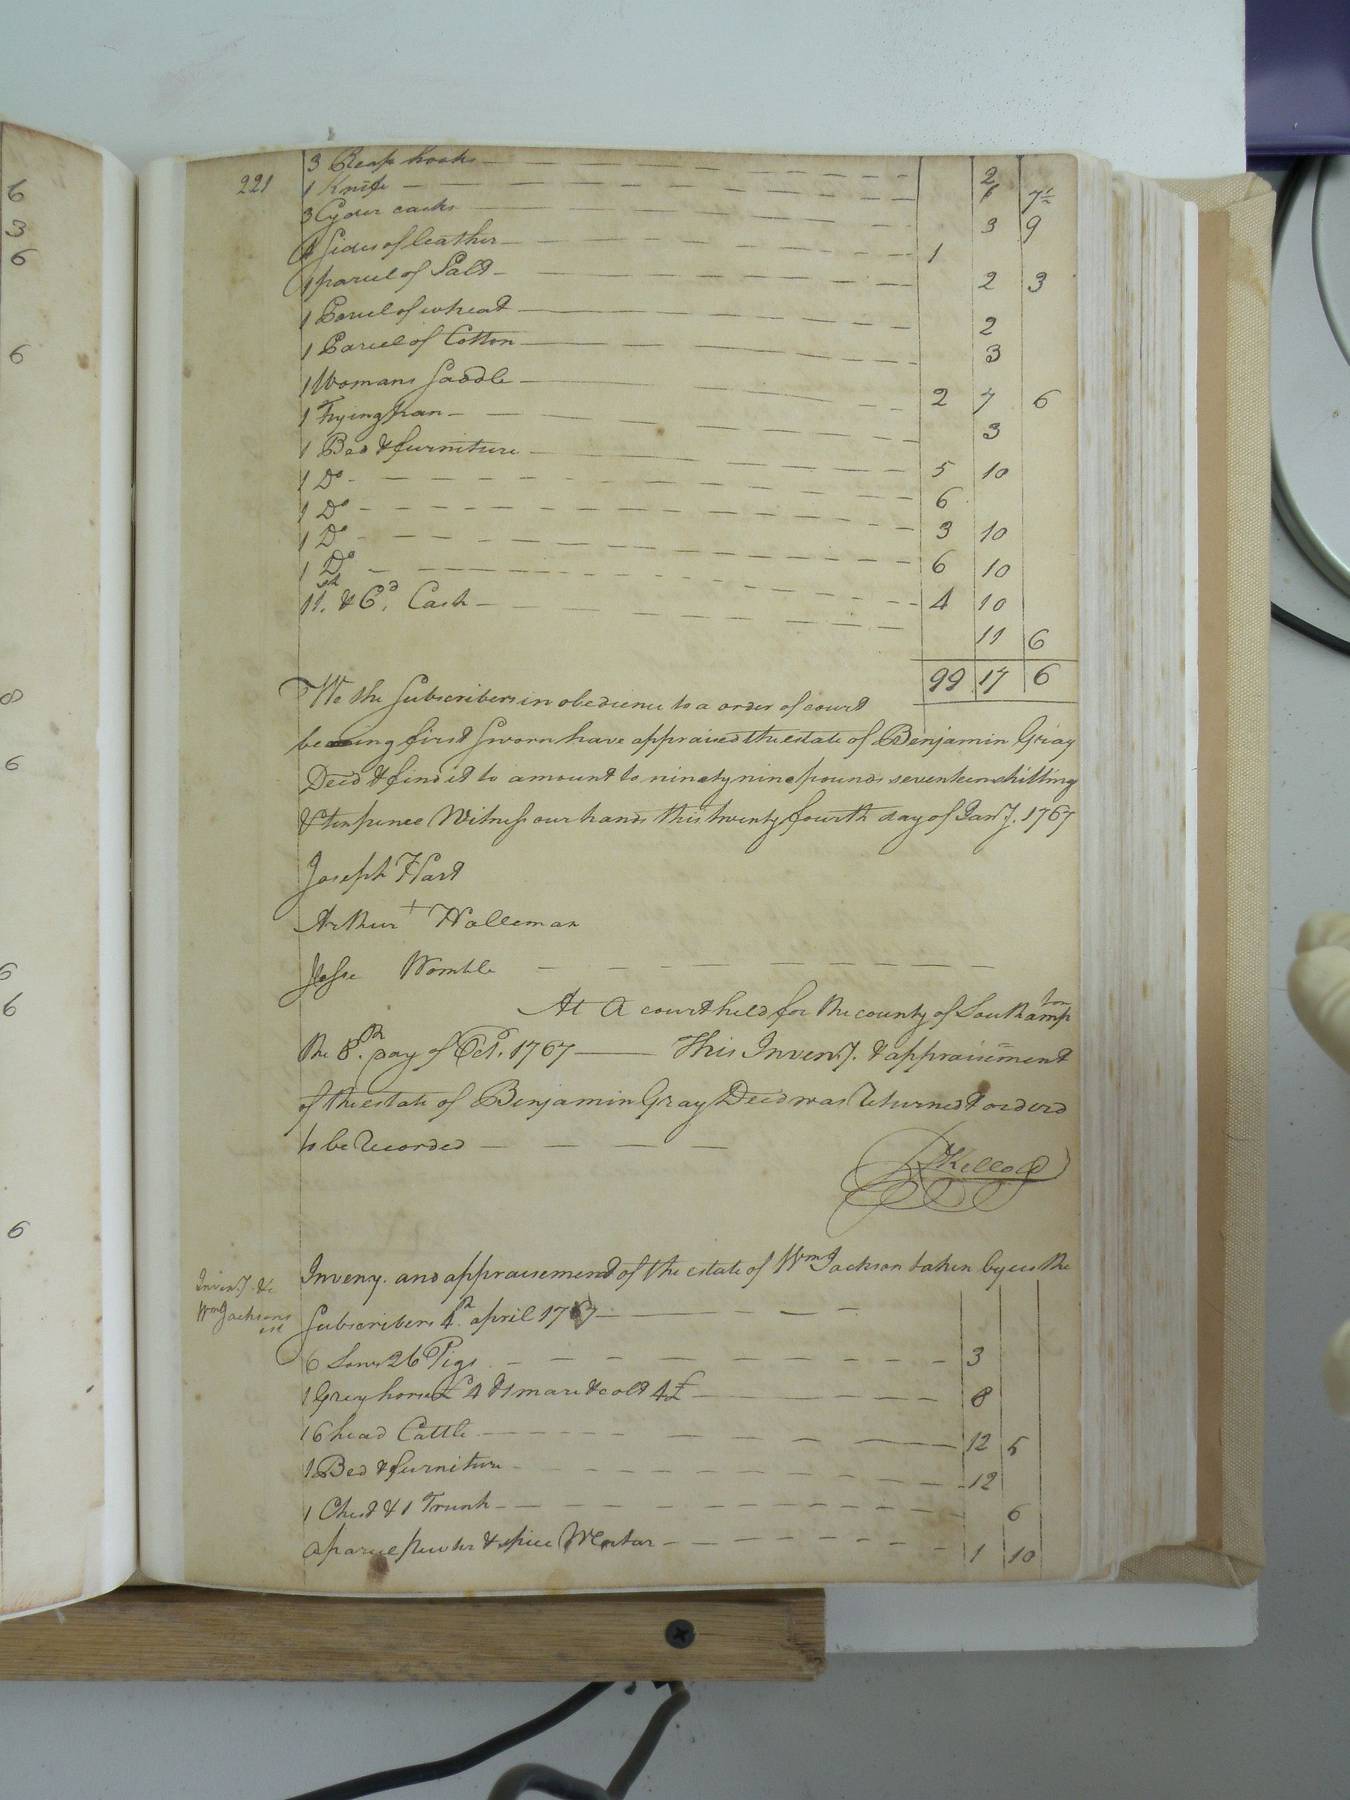 221
3 Reap hooks 2
1 Knife 1 7½
3 Cyder casks 3 9
4 Sides of leather 1
1 parcel of Salt 2 3
1 Parcel of wheat 2
1 Parcel of Cotton 3
1 Womans Saddle 2 7 6
1 Frying pan 3
1 Bed & furniture 5 10
1 Do 6
1 Do 3 10
1 Do 6 10
1 Do 4 10
11sh & 6d. Cash 11 6
99 17 6
We the Subscribers in obedience to a order of court
being first Sworn have appraised the estate of Benjamin Gray
Decd & find it to amount to ninety nine pounds seventeen shilling
& tenpence Witness our hands this twenty fourth day of Jany. 1767
Joseph Hart
Arthur + Holleman
Jesse Womble
At A court held for the county of Southampton
the 8th. day of Oct. 1767 This Inveny. & appraisement
of the estate of Benjamin Gray Decd was Returned & orderd
to be Recorded
RKello
Inveny. &c
Wm Jacksons
est
Inveny. and appraisement of the estate of Wm Jackson taken by us the
Subscribers 4th april 1767
6 Sows 26 Pigs 3
1 Grey horse £4 & 1 mare & colt 4£ 8
16 head Cattle 12 5
1 Bed & furniture 12
1 Chest & 1 Trunk 6
a parcel pewter & spice Mortar 1 10
6
3
6
6
8
6
6
6
6